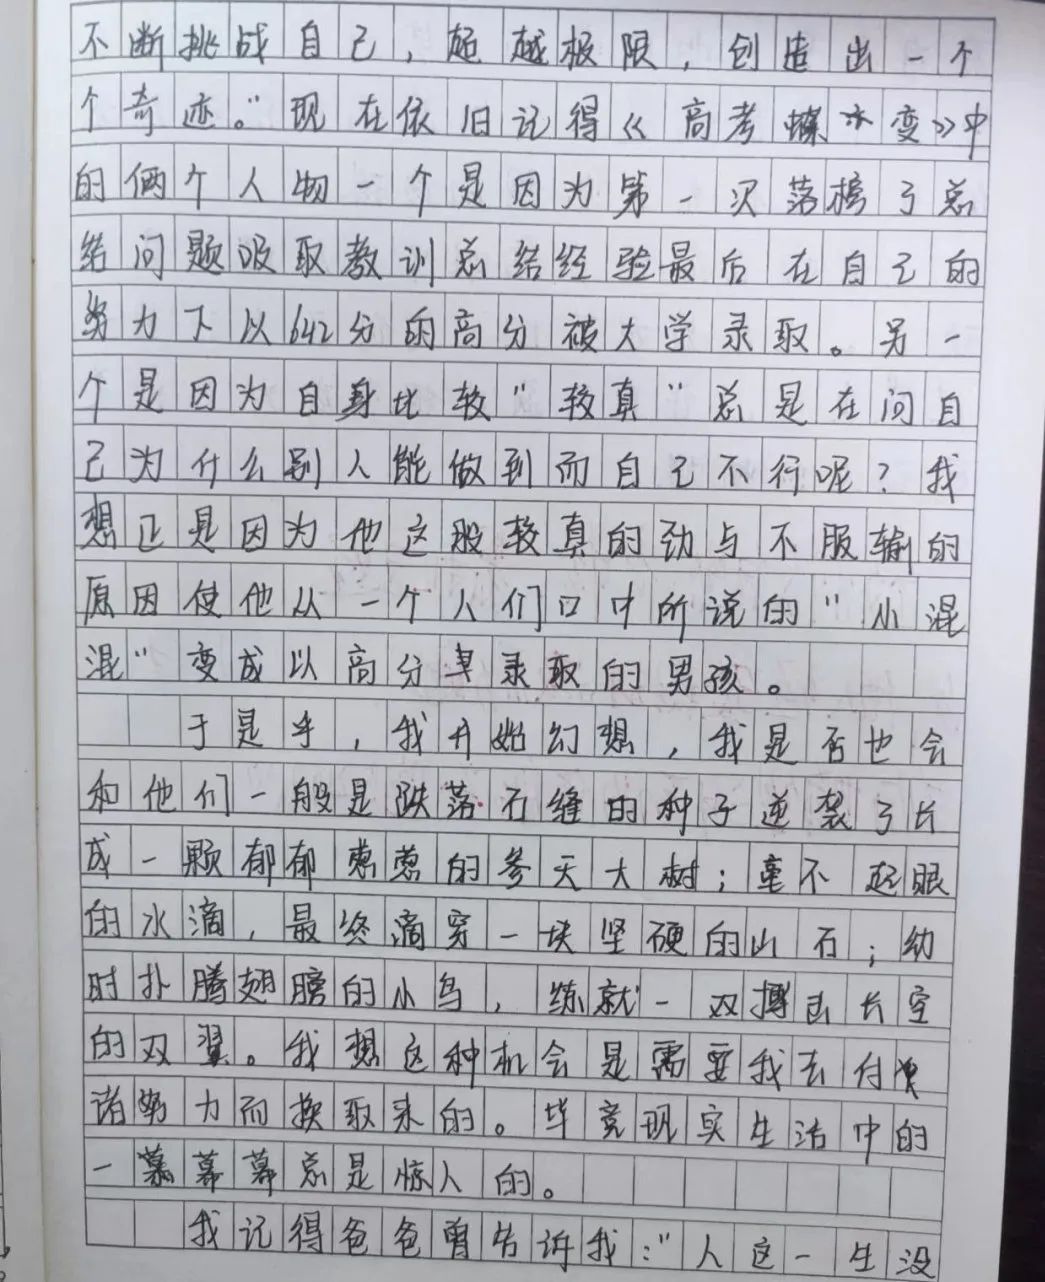 不断挑战自己，超越极限，创造出一个
个奇迹。"现在依旧记得《高考蝶变》中
的俩个人物一个是因为第一次落榜了总
结问题吸取教训总结经验最后在自己的
努力下以642分的高分被大学录取。另一
个是因为自身比较"较真"总是在问自
己为什么别人能做到而自己不行呢？我
想正是因为他这股较真的劲与不服输的
原因使他从一个人们口中所说的"小混
混"变成以高分录取的男孩。
于是乎，我开始幻想，我是否也会
和他们一般是跌落石缝的种子逆袭了长
成一颗郁郁葱葱的参天大树；毫不起眼
的水滴，最终滴穿一块坚硬的山石；幼
时扑腾翅膀的小鸟，练就一双搏击长空
的双翼。我想这种机会是需要我去付
诸努力而换取来的。毕竟现实生活中的
一幕幕总是惊人的。
我记得爸爸曾告诉我："人这一生没